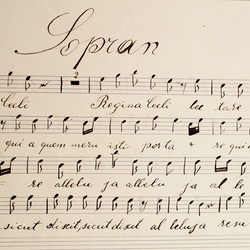 Sopran
2
Coeli Regina Coeli lae tare
qui a quem meru isti porta re qui
= re allelu ja allelu ja al le
sicut dixit, sicut dixit al leluja resu